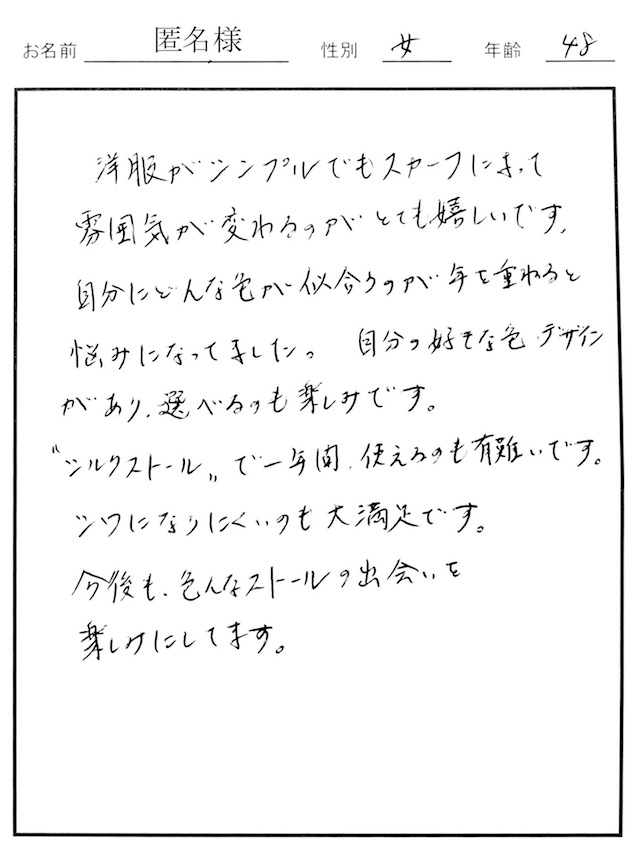 お名前 匿名様 性別 女 年齢 48
洋服がシンプルでもスカーフによって
雰囲気が変わるのがとても嬉しいです。
自分にどんな色が似合うのが年を重ねると
悩みになってました。 自分の好きな色 デザイン
があり、選べるのも楽しみです。
"シルクストール"で一年間、使えるのも有難いです。
シワになりにくいのも大満足です。
今後も、色んなストールの出会いを
楽しみにしてます。